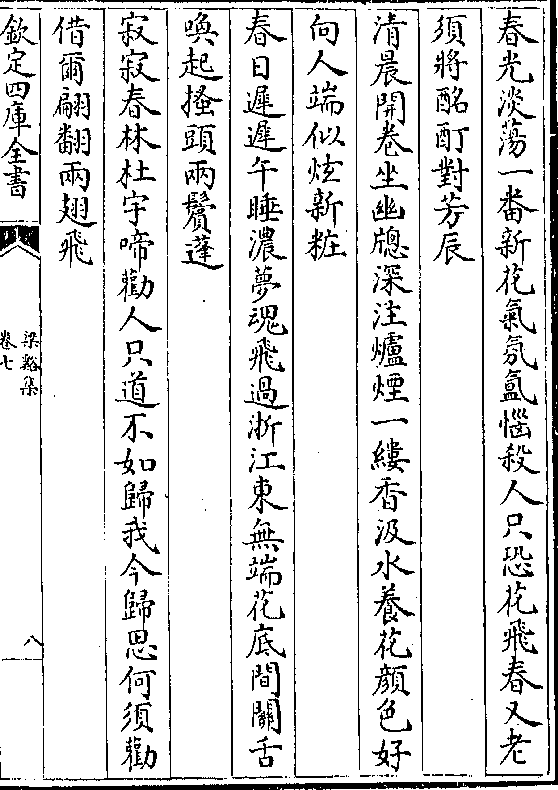 春光淡蕩一番新花氣氛氲惱殺人只恐花飛春又老
須將酩酊對芳辰
清晨開卷坐幽牕深注爐煙一縷香汲水養花顔色好
向人端似炫新粧
春日遲遲午睡濃夢魂飛過浙江東無端花底間關舌
喚起搔頭兩鬢蓬
寂寂春林杜宇啼勸人只道不如歸我今歸思何須勸
借爾翩翻兩翅飛
欽定四庫全書
梁谿集
卷七
八